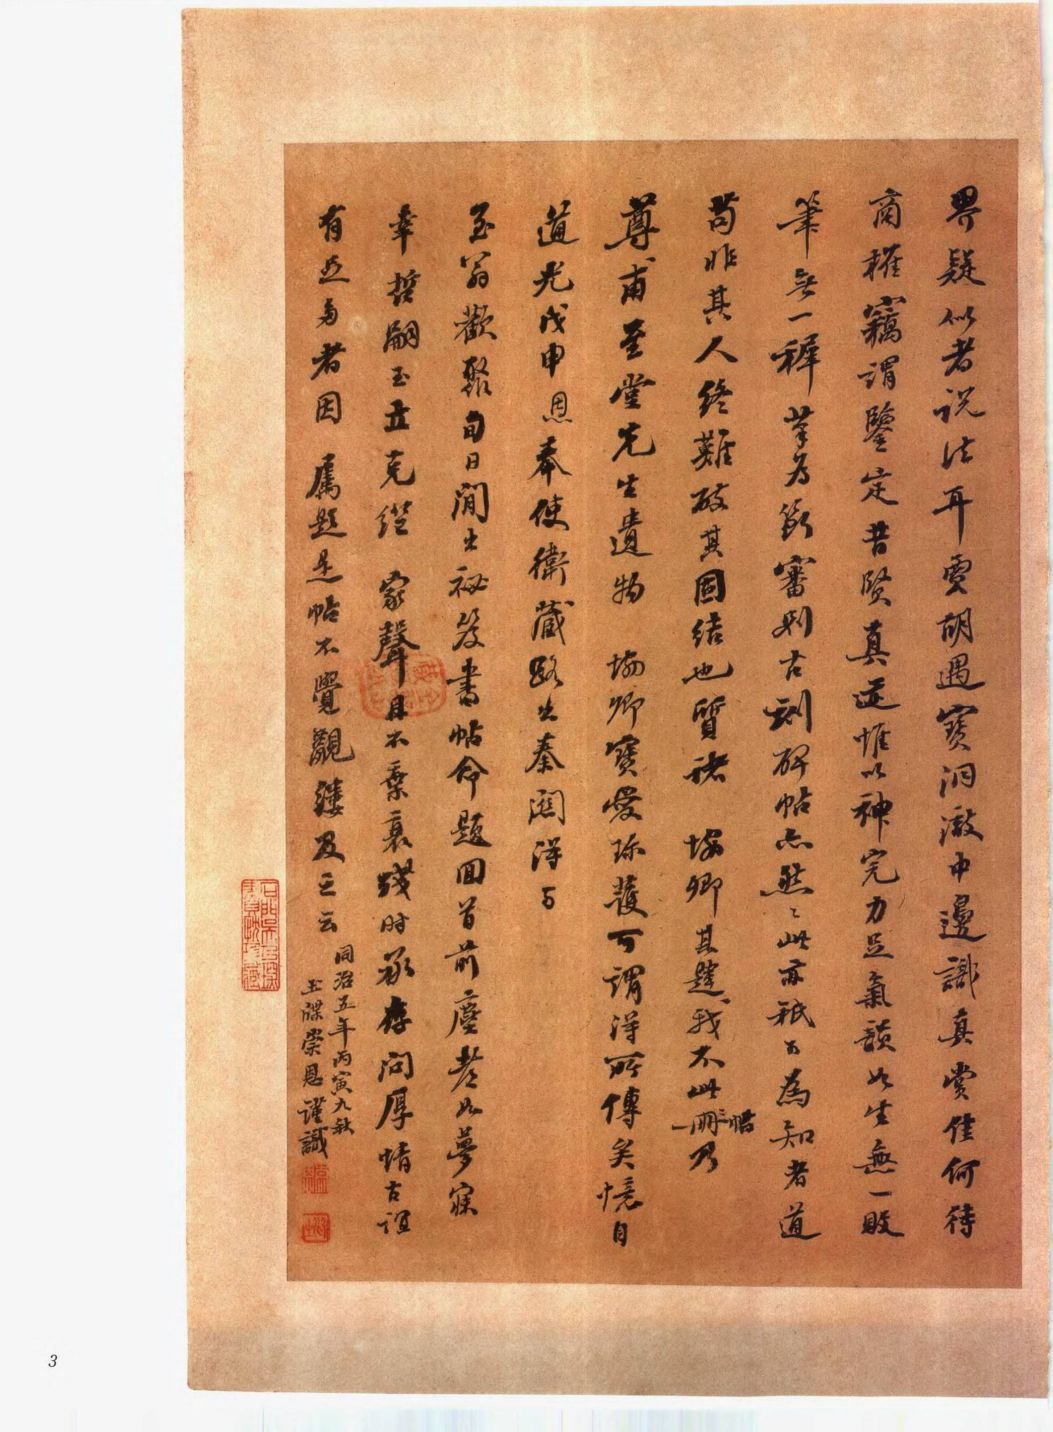 畀疑似者说法耳賈胡遇寶洞澈中邊識真賞佳何待
商榷竊謂鑒定昔賢真迹惟以神完力足氣韻如生無一敗
筆無一稚筆为斷審别古刻碑帖亦然々此亦祇可為知者道
苟非其人终難破其固结也質诸 卿其韪我不此冊三帖乃
尊甫 堂先生遺物 卿寶愛珎護可謂得所傳矣憶自
道光戊申恩奉使衛藏路出秦關得与
翁歡聚旬日間出祕笈書帖命題回首前塵如夢寐
幸哲嗣 克繩 家聲且不棄衰殘时承存问厚情古誼
有 者因 属題是帖不覺覼縷及之云
同治五年丙寅九秋
玉牒崇恩謹識
3